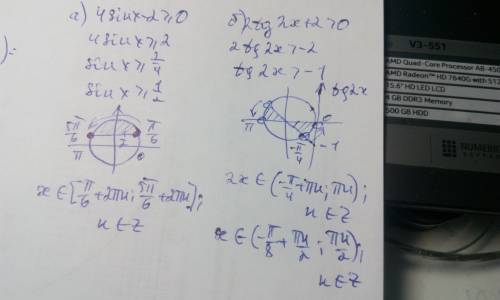 а) 4sinx-2≥0
4sinx≥2
sinx≥2/4
sinx≥1/2
5π/6
1/2
π/6
π
0
x∈[π/6+2πn; 5π/6+2πn];
n∈Z
б) 2tg2x+2>0
2tg2x>-2
tg2x>-1
tg2x
π
0
-π/4
-1
2x∈(-π/4+πn; πn);
n∈Z
x∈(-π/8+πn/2; πn/2);
n∈Z
V3-551
AMD Quad-Core Processor A8-450
AMD Radeon™ HD 7640G with 512
15.6" HD LED LCD
4 GB DDR3 Memory
500 GB HDD
NUMERIC